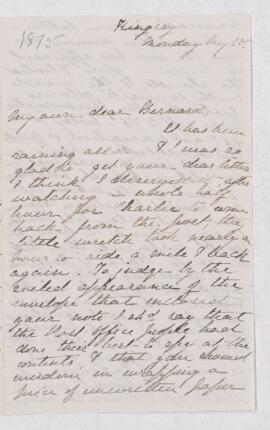 1875
Monday
My own dear Bernard,
It has been
raining all day & I was so
glad to get your dear letter
I think I deserved it after
watching a whole half
hour for Charlie to come
back from the post, the
little wretch took nearly an
hour to ride a mile & back
again. To judge by the
soiled appearance of the
envelope that enclosed
your note I shd say that
the Post Office people had
done their best to spy at the
contents & that you showed
wisdom in wrapping a
piece of unwritten paper